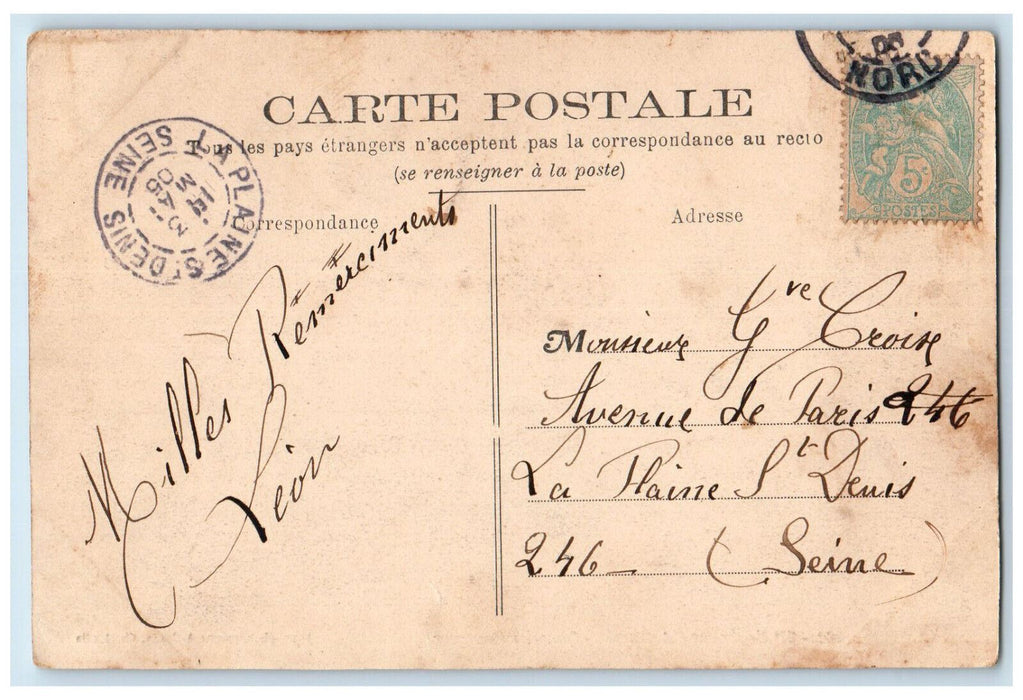 CARTE POSTALE
Tous les pays étrangers n'acceptent pas la correspondance au recto
(se renseigner à la poste)
Correspondance
Adresse
NORD
5c
POSTES
LA PLAINE ST DENIS
SEINE
MAI
05
Milles Remerciments
Léon
Monsieur Gve Croix
Avenue de Paris 246
La Plaine St Denis
246 (Seine)